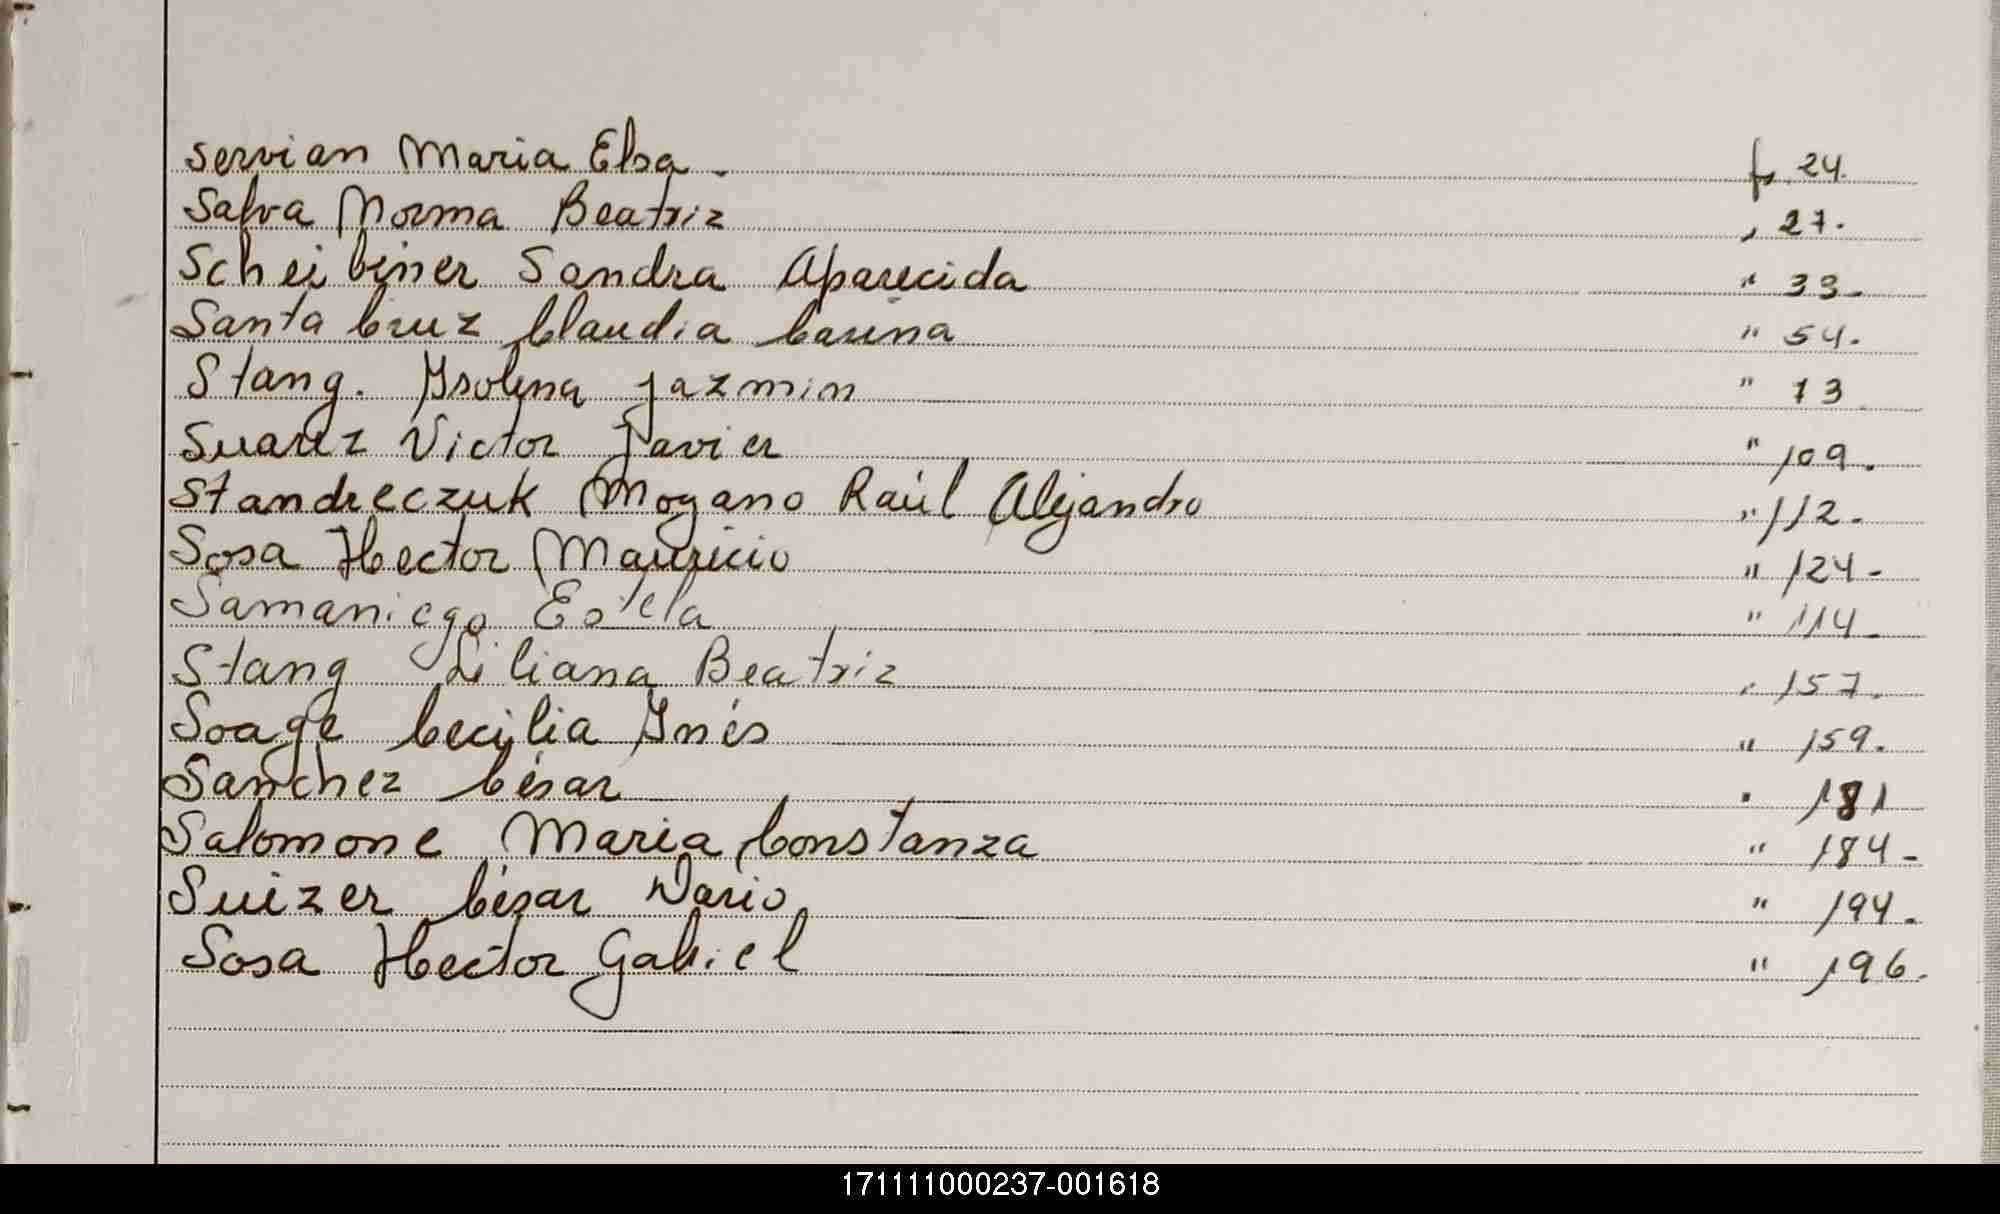 Servian Maria Elsa. f. 24.
Salva Norma Beatriz " 27.
Scheibiner Sandra Aparecida " 33.
Santa Cruz Claudia Carina " 54.
Stang. Ysolina Jazmin " 73
Suarez Victor Javier " 109.
Standreczuk Moyano Raúl Alejandro " 112.
Sosa Hector Mauricio " 124.
Samaniego Estela " 114.
Stang Liliana Beatriz " 157.
Soage Cecilia Ynés " 159.
Sanchez César " 181
Salomone Maria Constanza " 184.
Suizer César Dario " 194.
Sosa Hector Gabriel " 196.
171111000237-001618